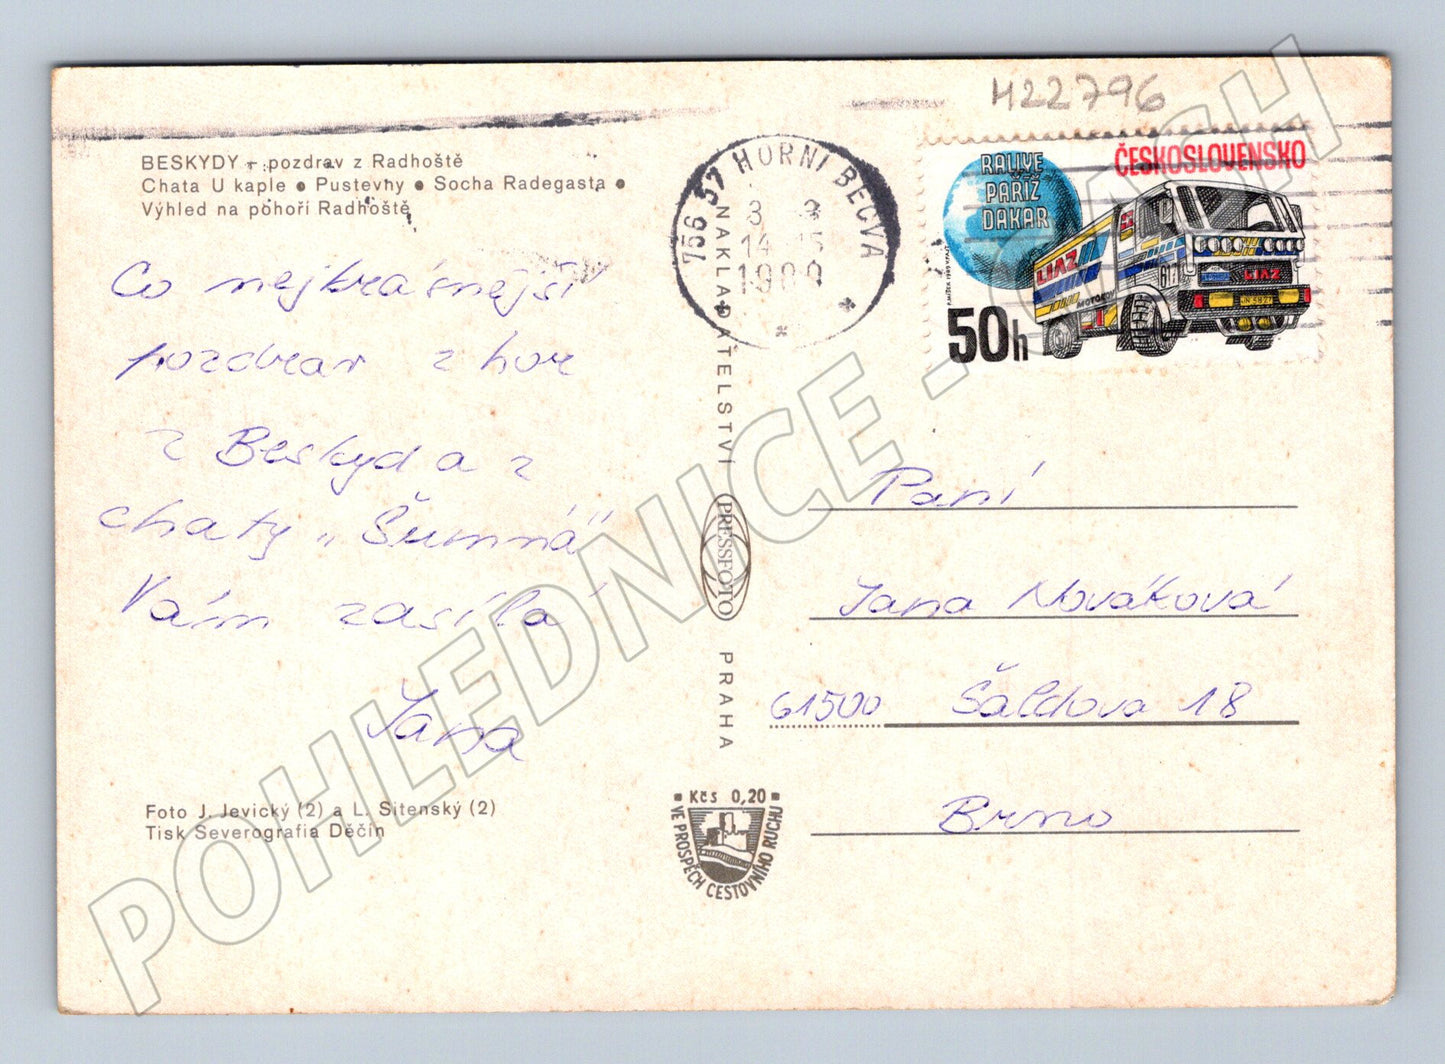 H22796
BESKYDY – pozdrav z Radhoště
Chata U kaple ● Pustevny ● Socha Radegasta ●
Výhled na pohoří Radhoště
Co nejkrásnější
pozdrav z hor
z Beskyd a z
chaty „Šumná"
Vám zasílá
Jana
Foto J. Jevický (2) a L. Sitenský (2)
Tisk Severografia Děčín
756 57 HORNÍ BEČVA
1989
NAKLADATELSTVÍ
PRESSFOTO
PRAHA
Kčs 0,20
VE PROSPĚCH CESTOVNÍHO RUCHU
RALLYE
PAŘÍŽ
DAKAR
ČESKOSLOVENSKO
LIAZ
LIAZ
50h
Paní
Jana Nováková
61500 Šaldova 18
Brno
POHLEDNICE - CASH